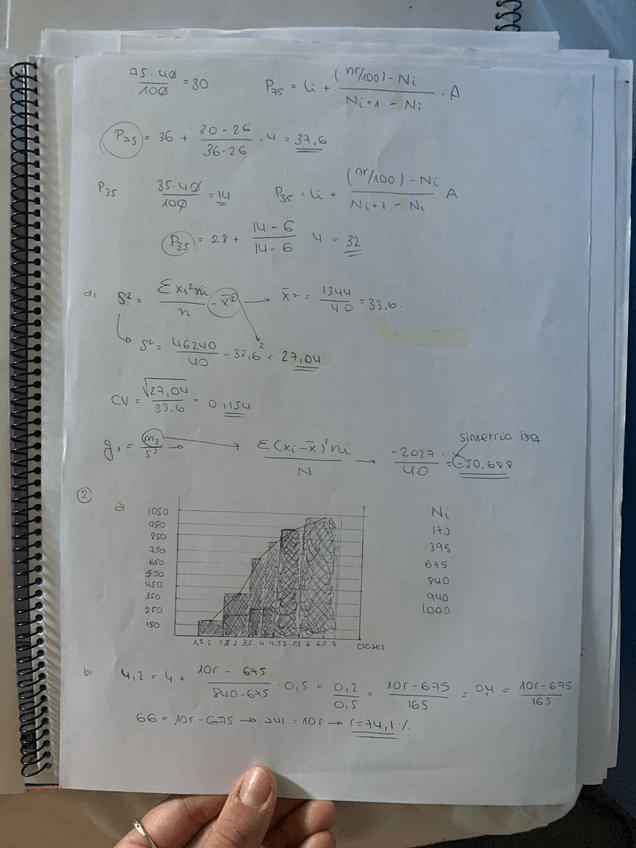 75·40/100 = 30 P75 = Li + (nr/100) - Ni / Ni+1 - Ni · A
P75 = 36 + 30 - 26 / 36 - 26 · 4 = 37,6
P35 35·40/100 = 14 P35 = Li + (nr/100) - Ni / Ni+1 - Ni A
P35 = 28 + 14 - 6 / 14 - 6 · 4 = 32
d) S² = Σxi²ni / n - x̄² → x̄² = 1344/40 = 33,6.
↳ S² = 46240/40 - 33,6² = 27,04
CV = √27,04 / 33,6 = 0,154
simetria izq
g1 = m3/S³ → Σ(xi - x̄)³ni / N → -2027/40 = -50,688
② a)
1050
980
880
750
650
550
450
350
250
150
1,5 2 2,5 3 3,5 4 4,5 5 5,5 6 6,5 7 clases
Ni
173
395
675
840
940
1000
b) 4,2 = 4 + 10r - 675 / 840 - 675 · 0,5 = 0,2/0,5 = 10r - 675 / 165 = 0,4 = 10r - 675 / 165
66 = 10r - 675 → 741 = 10r → r = 74,1 %.